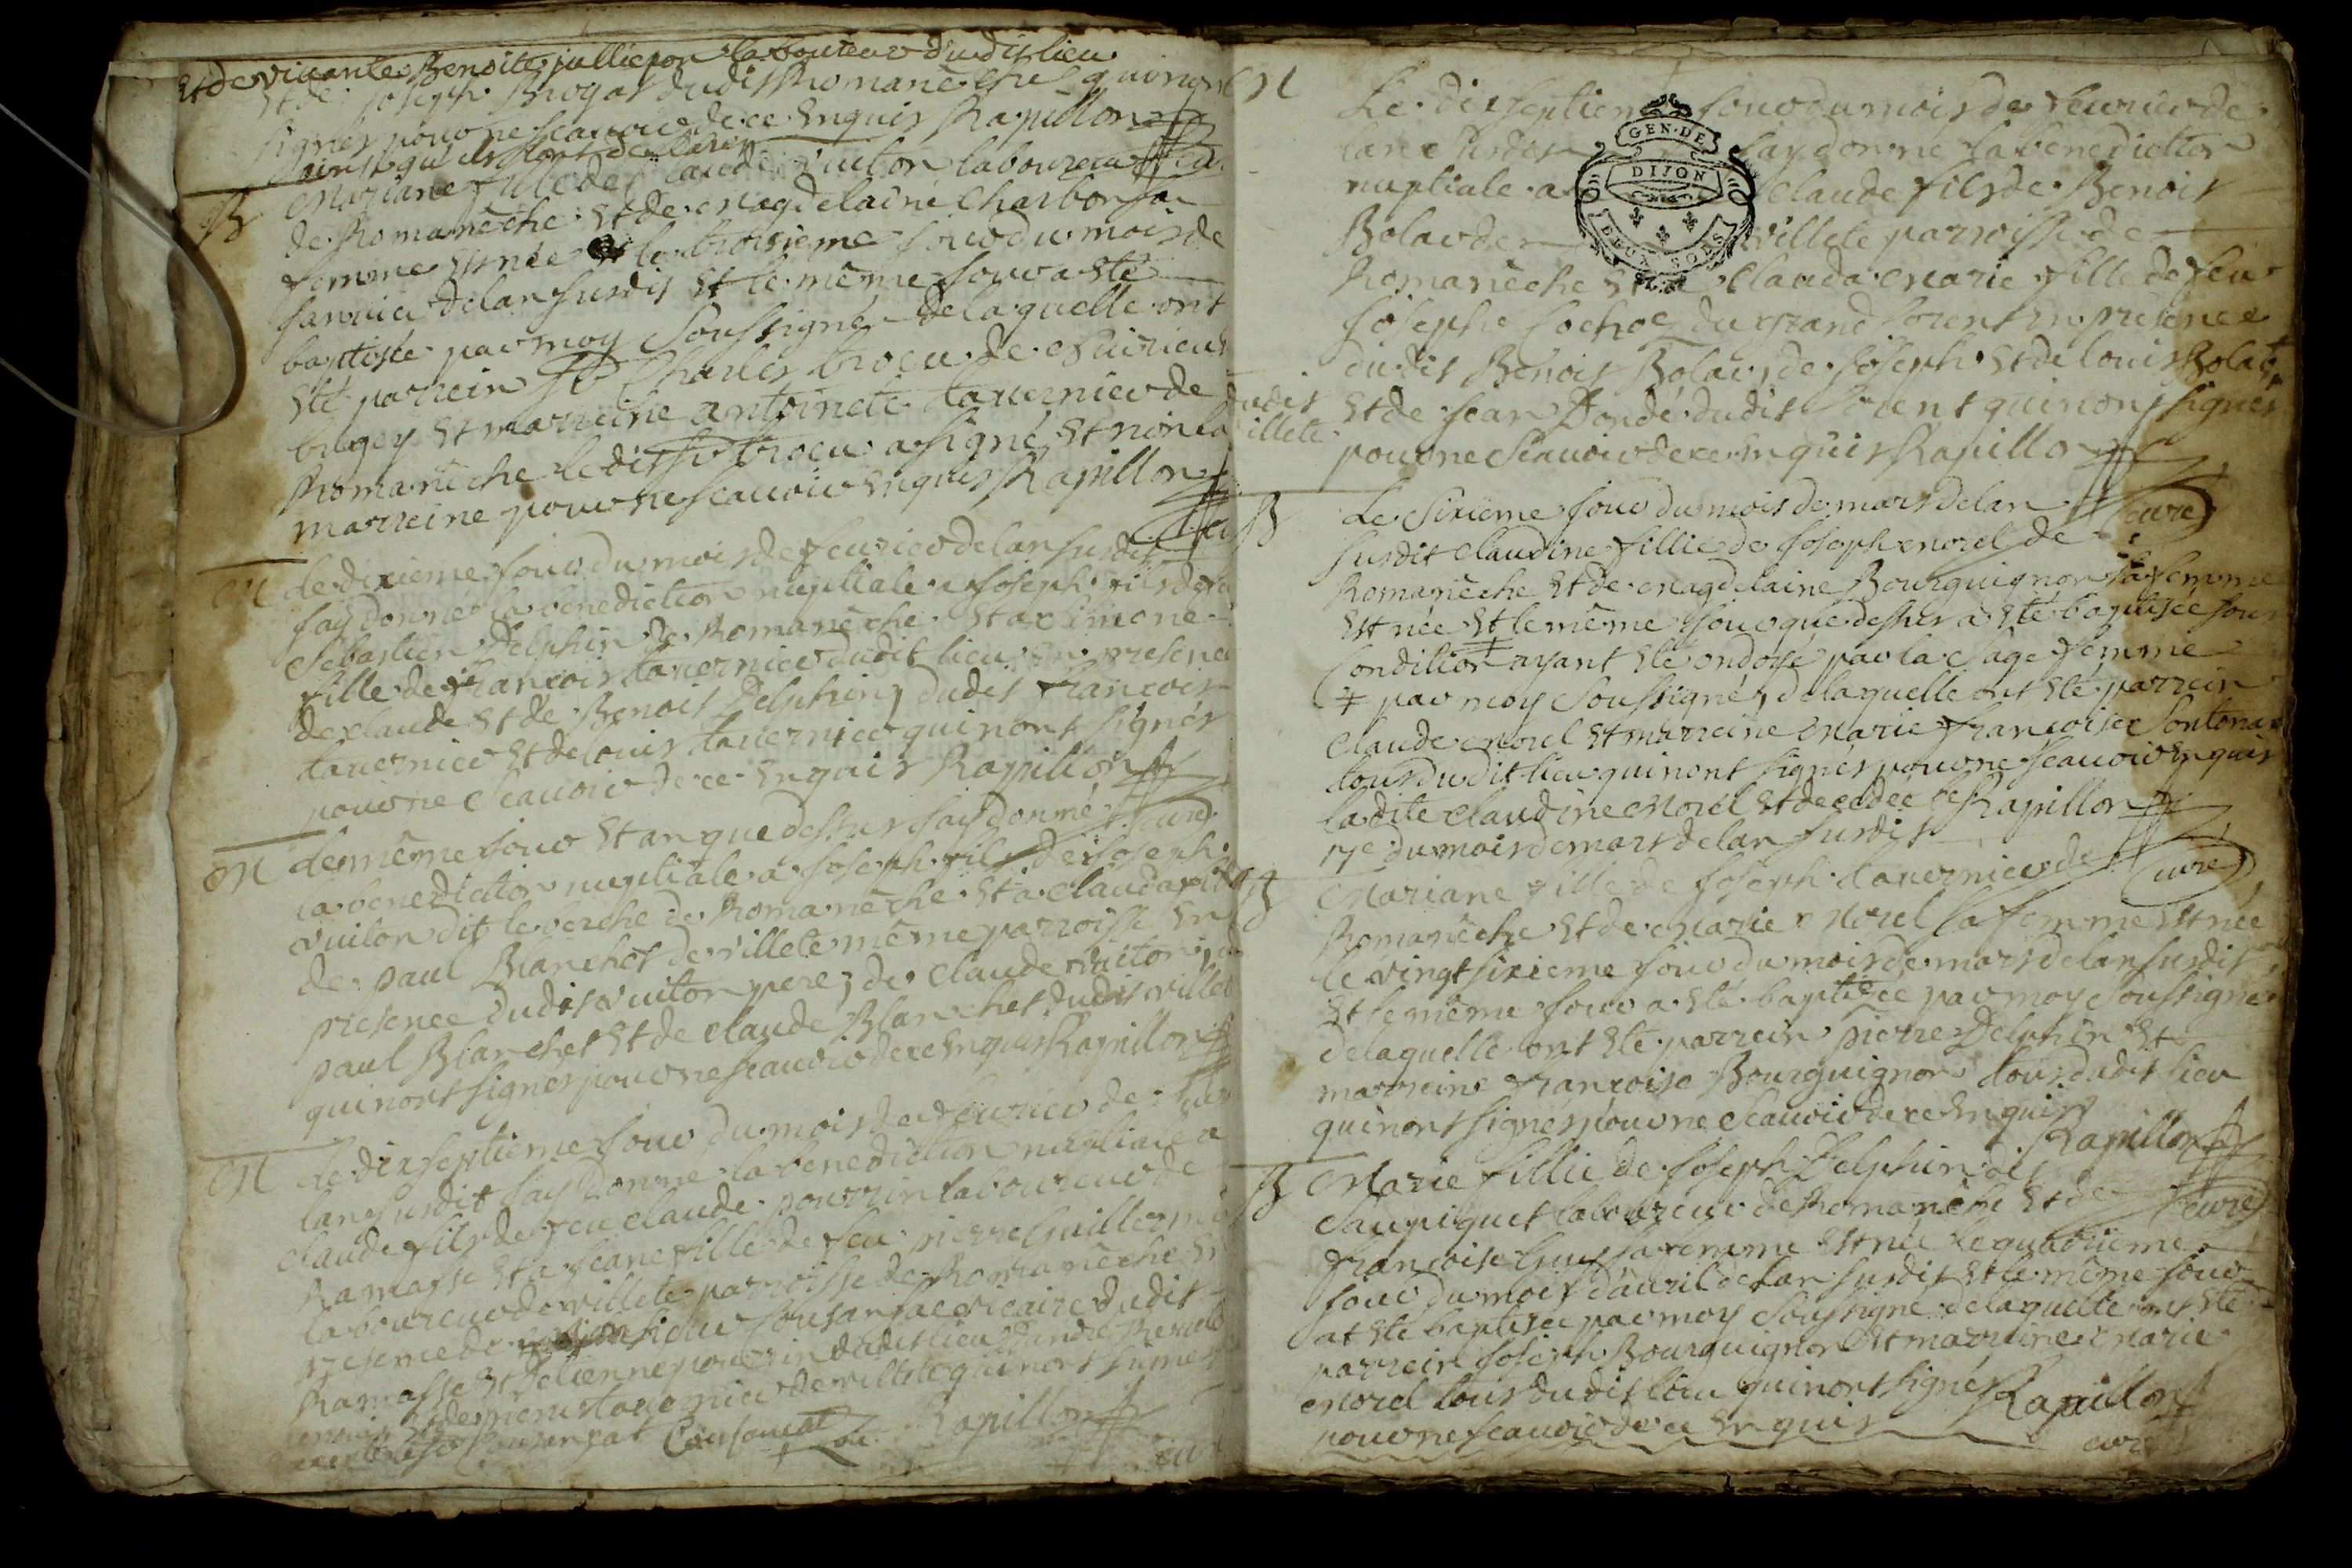 Et de vivante Benoite jullieron laboureur dudit lieu
Et de joseph Brogat dudit Romanêche qui nont
signés pour ne scavoir de ce enquis Rapillon
ainsi qu'ils l'ont declaré
B Mariane fille de claude vuiton laboureur
de Romanêche et de magdelaine charbon sa
femme est née le troisieme jour du mois de
janvier de lan susdit et le même jour a été
baptisée par moy soussigné, de laquelle ont
été parrein Sr Charles brocu de
bugey et marreine antoinete tavernier de
Romanêche ledit Sr brocu a signé et non la
marreine pour ne scavoir enquis Rapillon
M le dixieme jour du mois de fevrier de lan susdit
jay donné la benediction nuptiale a joseph fils de
Sebastien Delphin de Romanêche et a simone
fille de françois tavernier dudit lieu en presence
de claude et de Benoit Delphin, dudit françois
tavernier et de louis tavernier qui nont signés
pour ne scavoir de ce enquis Rapillon
M le même jour et an que dessus jay donné curé
la benediction nuptiale a joseph fils de joseph
vuiton dit le verche de Romanêche et a clauda fille
de paul Blanchet de villete même parroisse en
presence dudit vuiton pere, de claude vuiton, du
paul Blanchet et de claude Blanchet dudit villete
qui nont signés pour ne scavoir de ce enquis Rapillon
M le dix septieme jour du mois de fevrier de
lan susdit jay donné la benediction nuptiale a
claude fils de feu claude pourrin laboureur de
Ramasse et a jeane fille de feu pierre Guillermin
laboureur de villete parroisse de Romanêche en
presence de Cousansac vicaire dudit
Ramasse et detienne pourrin dudit lieu
tavernier de villete qui nont signés
Cousansat Rapillon
curé
M Le dix septieme jour du mois de fevrier de
lan susdit jay donné la benediction
nuptiale a claude fils de Benoit
Bolar de villete parroisse de
Romanêche et a Clauda marie fille de feu
joseph Cochoz du grand Corent en presence
dudit Benoit Bolar, de joseph et de louis Bolar
dudit villete
et de jean Dondé dudit Corent qui nont signés
pour ne scavoir de ce enquis Rapillon
GEN. DE
DIJON
DEUX SOLS
B Le sixieme jour du mois de mars de lan curé
susdit claudine fillie de joseph morel de
Romanêche et de magdelaine Bourguignon sa femme
est née et le même jour que dessus a été baptisée sous
condition ayant été ondoyé par la sage femme
‡ par moy soussigné, de laquelle ont été parrein
claude morel et marreine marie françoise Sontona
tous dudit lieu qui nont signés pour ne scavoir enquis
ladite claudine morel est decedée le Rapillon
17e du mois de mars de lan susdit
B Mariane fille de joseph tavernier de curé
Romanêche et de marie morel sa femme est née
le vingt sixieme jour du mois de mars de lan susdit
et le même jour a été baptizée par moy soussigné
de laquelle ont été parrein pierre Delphin et
marreine françoise Bourguignon tous dudit lieu
qui nont signés pour ne scavoir de ce enquis
Rapillon
B Marie fillie de joseph Delphin dit
Saupiquet laboureur de Romanêche et de curé
françoise Guy sa femme est née le quatrieme
jour du mois davril de lan susdit et le même jour
at été baptisée par moy soussigné de laquelle ont été
parrein joseph Bourguignon et marreine marie
morel tous dudit lieu qui nont signés
pour ne scavoir de ce enquis Rapillon
curé